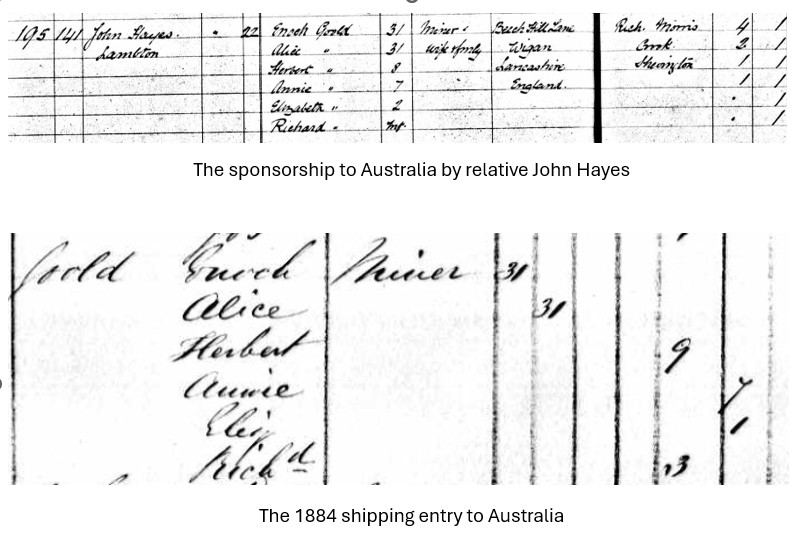 195 141 John Hayes. " 22 Enoch Goold 31 Miner Beech Hill Lane Rich. Morris 4 1
Lambton Alice " 31 wife & fmly Wigan Cook 2 1
Herbert " 8 Lancashire Shevington 1 1
Annie " 7 England. 1 1
Elizabeth " 2 . 1
Richard " Inf. . 1
The sponsorship to Australia by relative John Hayes
Goold Enoch Miner 31
Alice 31
Herbert 9
Annie 7
Eliz 1
Richd 3
The 1884 shipping entry to Australia